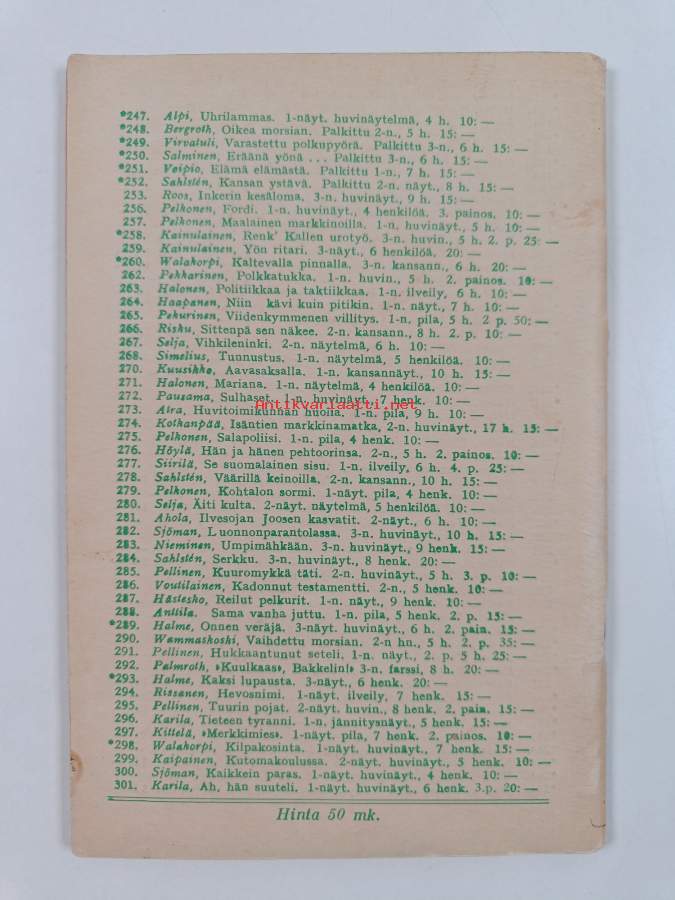 *247. Alpi, Uhrilammas. 1-näyt. huvinäytelmä, 4 h. 10: —
*248. Bergroth, Oikea morsian. Palkittu 2-n., 5 h. 15: —
*249. Virvatuli, Varastettu polkupyörä. Palkittu 3-n., 6 h. 15: —
*250. Salminen, Eräänä yönä . . . Palkittu 3-n., 6 h. 15: —
*251. Veipio, Elämä elämästä. Palkittu 1-n., 7 h. 15: —
*252. Sahlstén, Kansan ystävä. Palkittu 2-n. näyt., 8 h. 15: —
253. Roos, Inkerin kesäloma. 3-n. huvinäyt., 9 h. 15: —
256. Pelkonen, Fordi. 1-n. huvinäyt., 4 henkilöä. 3. painos. 10: —
257. Pelkonen, Maalainen markkinoilla. 1-n. huvinäyt., 5 h. 10: —
*258. Kainulainen, Renk' Kallen urotyö. 3-n. huvin., 5 h. 2. p. 25: —
259. Kainulainen, Yön ritari. 3-näyt., 6 henkilöä, 20: —
*260. Walakorpi, Kaltevalla pinnalla. 3-n. kansann., 6 h. 20: —
262. Pekkarinen, Polkkatukka. 1-n. huvin., 5 h. 2. painos. 10: —
263. Halonen, Politiikkaa ja taktiikkaa. 1-n. ilveily, 6 h. 10: —
264. Haapanen, Niin kävi kuin pitikin. 1-n. näyt., 7 h. 10: —
265. Pekurinen, Viidenkymmenen villitys. 1-n. pila, 5 h. 2 p. 50: —
266. Risku, Sittenpä sen näkee. 2-n. kansann., 8 h. 2. p. 10: —
267. Selja, Vihkileninki. 2-n. näytelmä, 6 h. 10: —
268. Simelius, Tunnustus. 1-n. näytelmä, 5 henkilöä. 10: —
270. Kuusikko, Aavasaksalla. 1-n. kansannäyt., 10 h. 15: —
271. Halonen, Mariana. 1-n. näytelmä, 4 henkilöä. 10: —
272. Pausama, Sulhaset. 1-n. huvinäyt. 7 henk. 10: —
Antikvariaatti.net
273. Aira, Huvitoimikunnan huolia. 1-n. pila, 9 h. 10: —
274. Kotkanpää, Isäntien markkinamatka, 2-n. huvinäyt., 17 h. 15: —
275. Pelkonen, Salapoliisi. 1-n. pila, 4 henk. 10: —
276. Höylä, Hän ja hänen pehtoorinsa. 2-n., 5 h. 2. painos. 10: —
277. Siirilä, Se suomalainen sisu. 1-n. ilveily, 6 h. 4. p. 25: —
278. Sahlstén, Väärillä keinoilla. 2-n. kansann., 10 h. 15: —
279. Pelkonen, Kohtalon sormi. 1-näyt. pila, 4 henk. 10: —
280. Selja, Äiti kulta. 2-näyt. näytelmä, 5 henkilöä. 10: —
281. Ahola, Ilvesojan Joosen kasvatit. 2-näyt., 6 h. 10: —
282. Sjöman, Luonnonparantolassa. 3-n. huvinäyt., 10 h. 15: —
283. Nieminen, Umpimähkään. 3-n. huvinäyt., 9 henk. 15: —
284. Sahlstén, Serkku. 3-n. huvinäyt., 8 henk. 20: —
285. Pellinen, Kuuromykkä täti. 2-n. huvinäyt., 5 h. 3. p. 10: —
286. Voutilainen, Kadonnut testamentti. 2-n., 5 henk. 10: —
287. Hästesko, Reilut pelkurit. 1-n. näyt., 9 henk. 10: —
288. Anttila. Sama vanha juttu. 1-n. pila, 5 henk. 2. p. 15: —
*289. Halme, Onnen veräjä. 3-näyt. huvinäyt., 6 h. 2. pain. 15: —
290. Wammaskoski, Vaihdettu morsian. 2-n hn., 5 h. 2. p. 35: —
291. Pellinen, Hukkaantunut seteli. 1-n. näyt., 2. p. 5 h. 25: —
292. Palmroth, »Kuulkaas», Bakkelin!» 3-n. farssi, 8 h. 20: —
*293. Halme, Kaksi lupausta. 3-näyt., 6 henk. 20: —
294. Rissanen, Hevosnimi. 1-näyt. ilveily, 7 henk. 15: —
295. Pellinen, Tuurin pojat. 2-näyt. huvin., 8 henk. 2. pain. 15: —
296. Karila, Tieteen tyranni. 1-n. jännitysnäyt., 5 henk. 15: —
297. Kittelä, »Merkkimies». 1-näyt. pila, 7 henk. 2. painos. 10: —
*298. Walakorpi, Kilpakosinta. 1-näyt. huvinäyt., 7 henk. 15: —
299. Kaipainen, Kutomakoulussa. 2-näyt. huvinäyt., 5 henk. 10: —
300. Sjöman, Kaikkein paras. 1-näyt. huvinäyt., 4 henk. 10: —
301. Karila, Ah, hän suuteli. 1-näyt. huvinäyt., 6 henk. 3.p. 20: —
Hinta 50 mk.